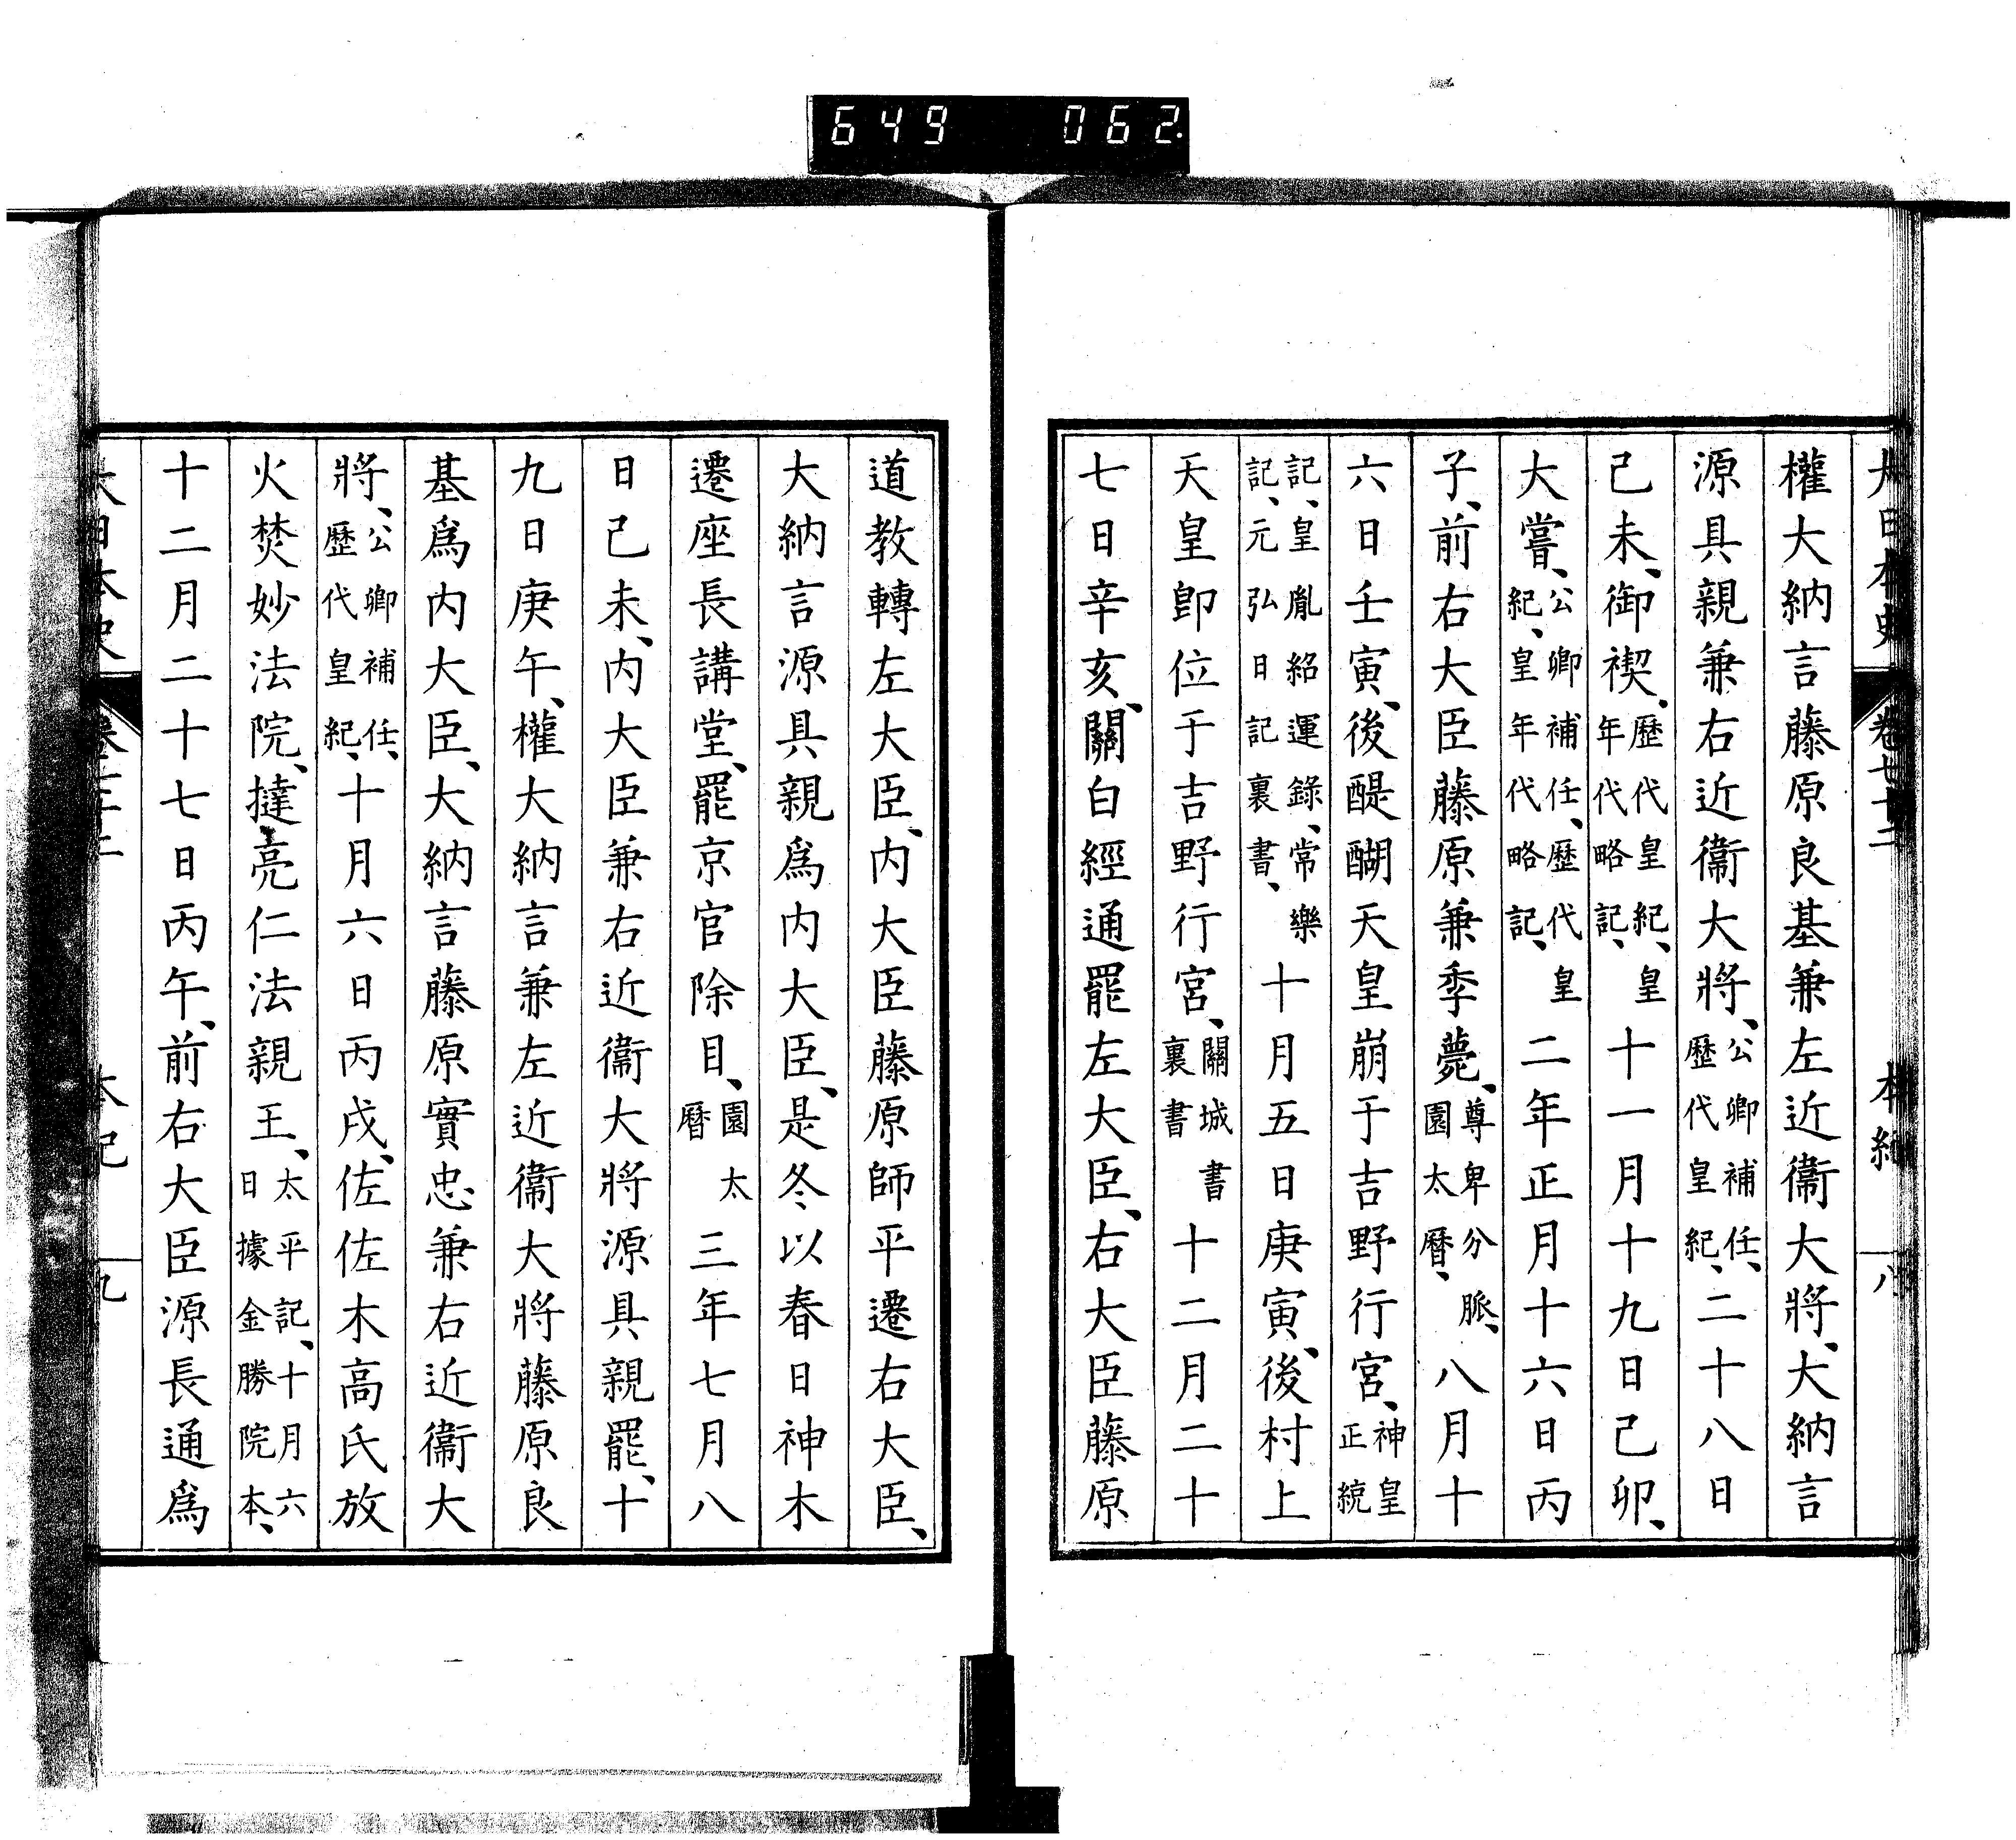 649 062
大日本史 卷七十二 本紀 八
權大納言藤原良基兼左近衞大將、大納言
源具親兼右近衞大將、公卿補任、歷代皇紀、二十八日
己未、御禊、歷代皇紀、皇年代略記、十一月十九日己卯、
大嘗、公卿補任、歷代皇紀、皇年代略記、二年正月十六日丙
子、前右大臣藤原兼季薨、尊卑分脈、園太曆、八月十
六日壬寅、後醍醐天皇崩于吉野行宮、神皇正統
記、皇胤紹運錄、常樂記、元弘日記裏書、十月五日庚寅、後村上
天皇卽位于吉野行宮、關城書裏書十二月二十
七日辛亥、關白經通罷左大臣、右大臣藤原
道教轉左大臣、内大臣藤原師平遷右大臣、
大納言源具親爲内大臣、是冬以春日神木
遷座長講堂、罷京官除目、園太曆三年七月八
日己未、内大臣兼右近衞大將源具親罷、十
九日庚午、權大納言兼左近衞大將藤原良
基爲内大臣、大納言藤原實忠兼右近衞大
將、公卿補任、歷代皇紀、十月六日丙戌、佐佐木高氏放
火焚妙法院、撻亮仁法親王、太平記、十月六日據金勝院本、
十二月二十七日丙午、前右大臣源長通爲
大日本史 卷七十二 本紀 九